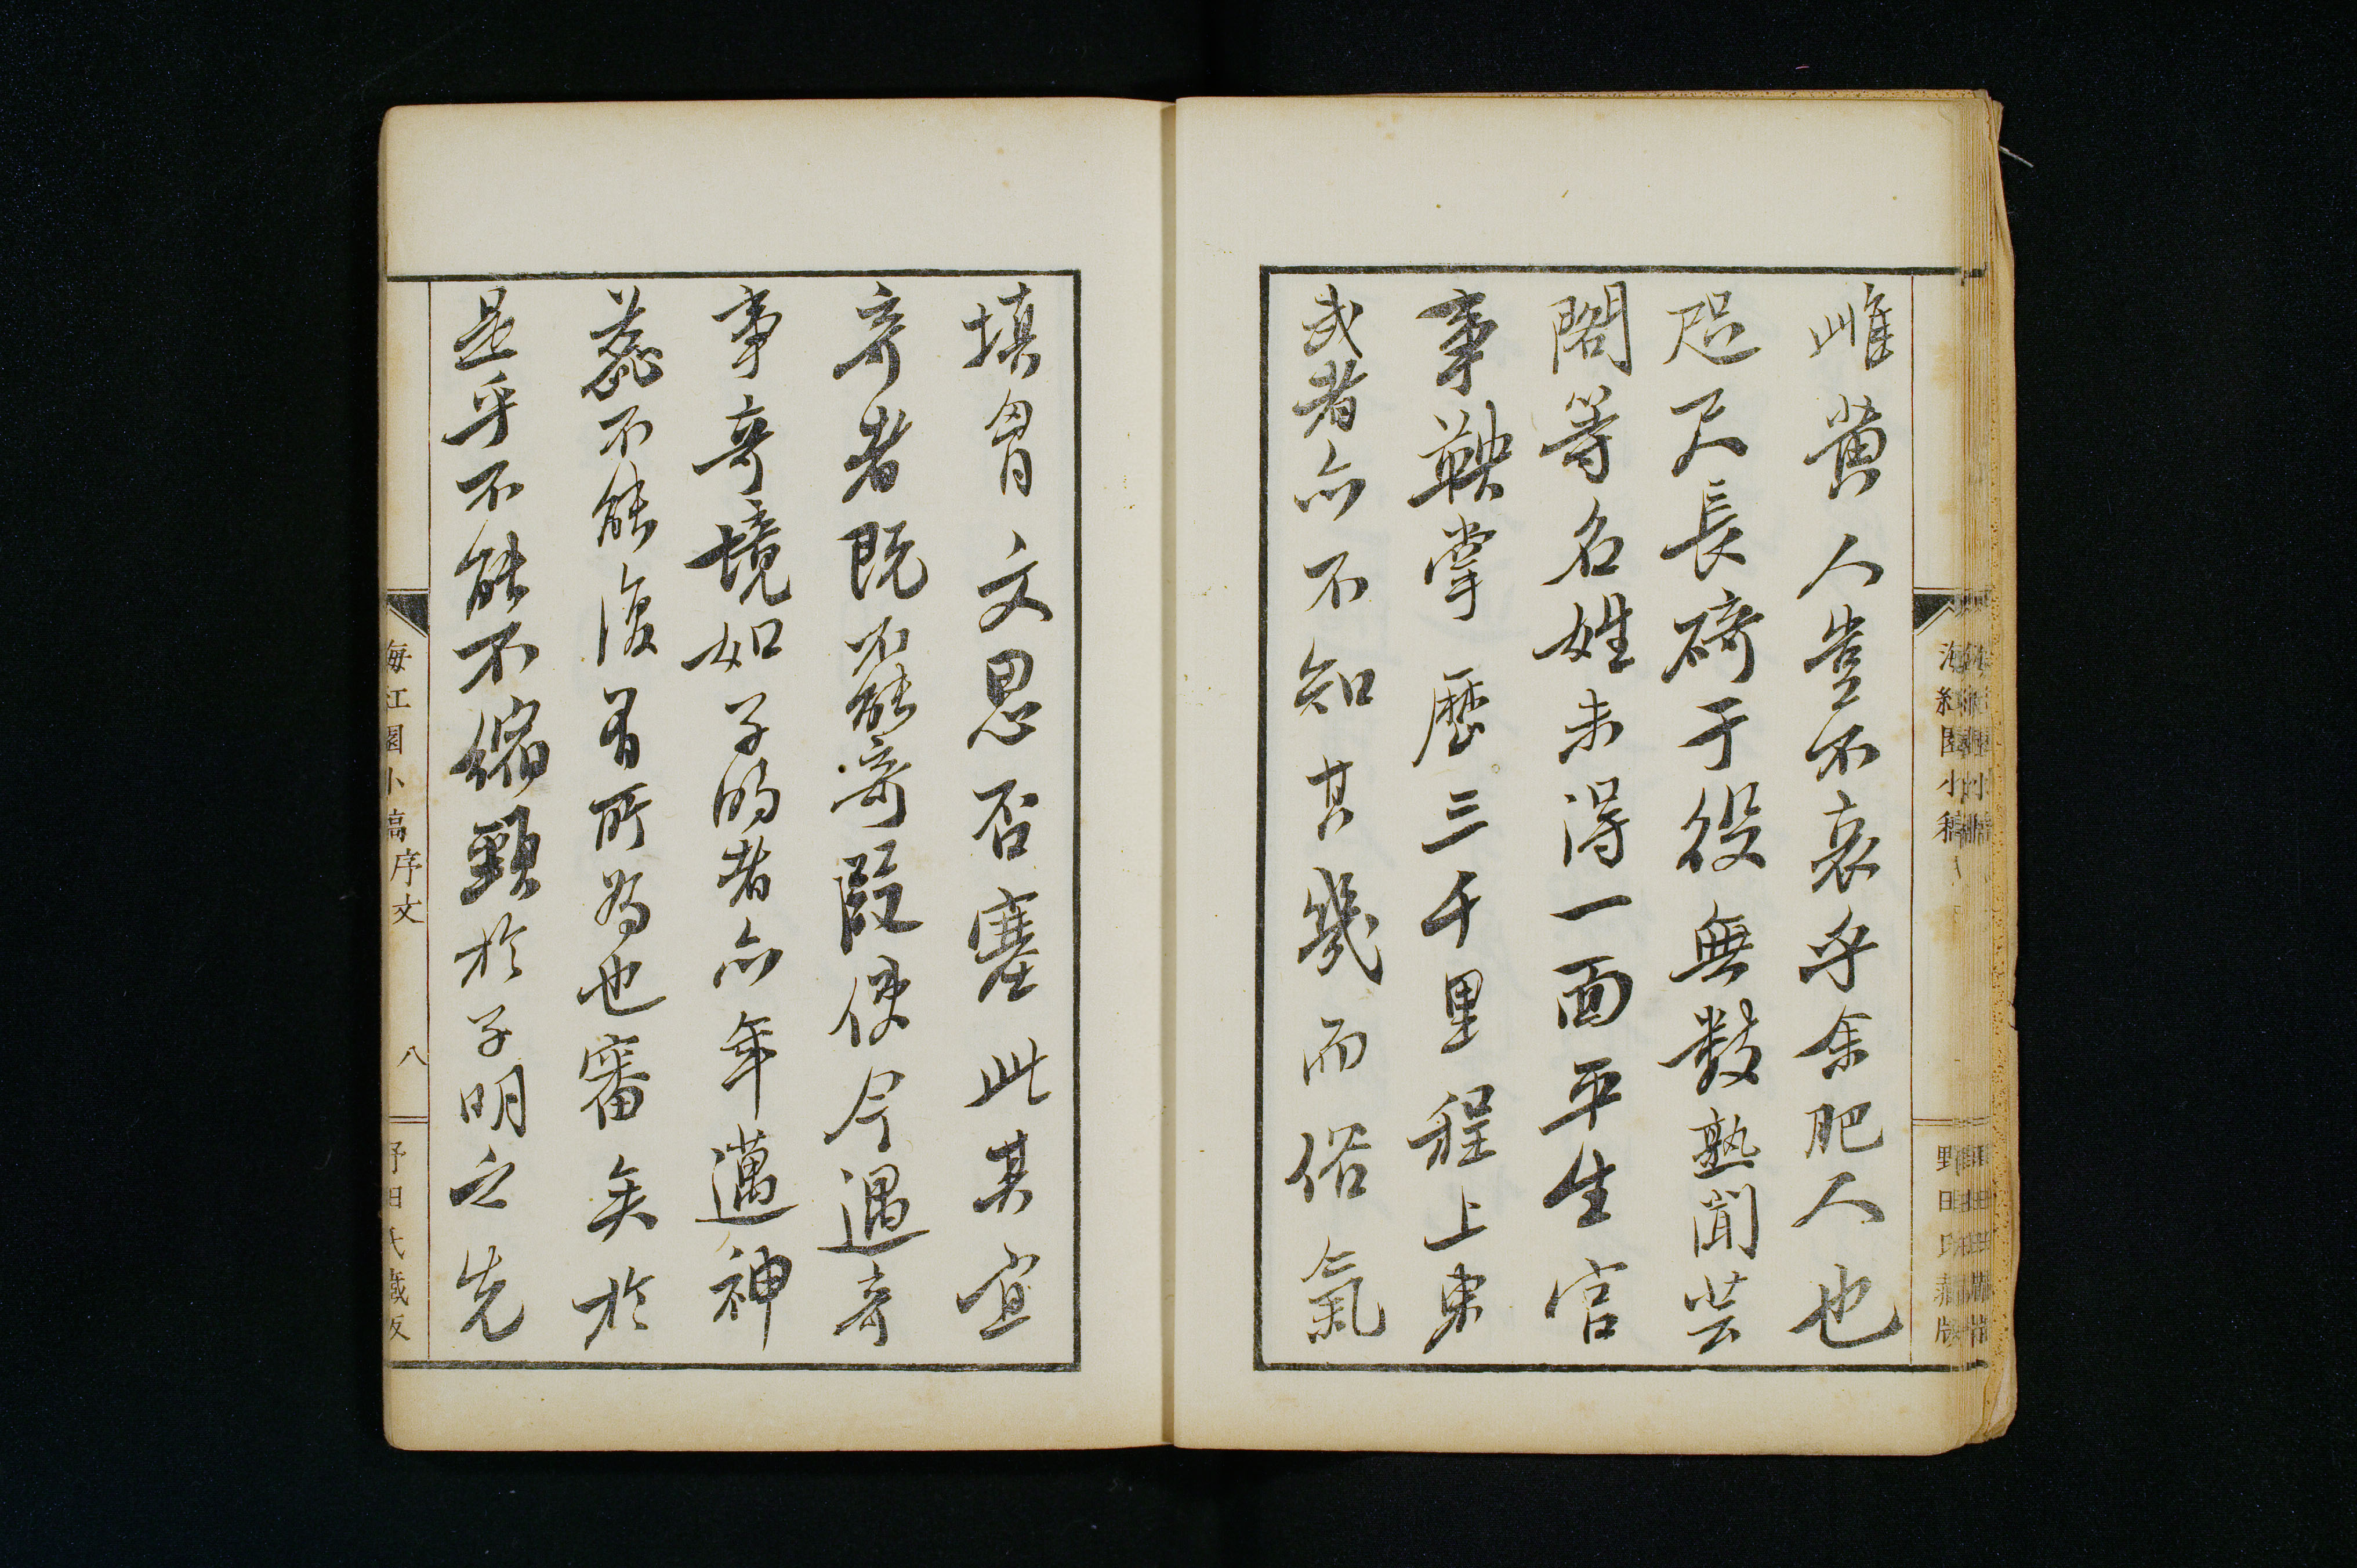 雌黄人豈不哀乎余肥人也
咫尺長碕于役無数熟聞芸
閣等名姓未得一面平生官
事鞅掌歴三千里程上東
武者亦不知其幾而俗氣
填胷文思否塞此其宜
奇者既不能奇叚使今遇奇
事奇境如子明者亦年邁神
蕊不能復有所為也審矣於
是乎不能不縮頸於子明之先
海紅園小稿
海紅園小稿序文 八
野田氏藏版